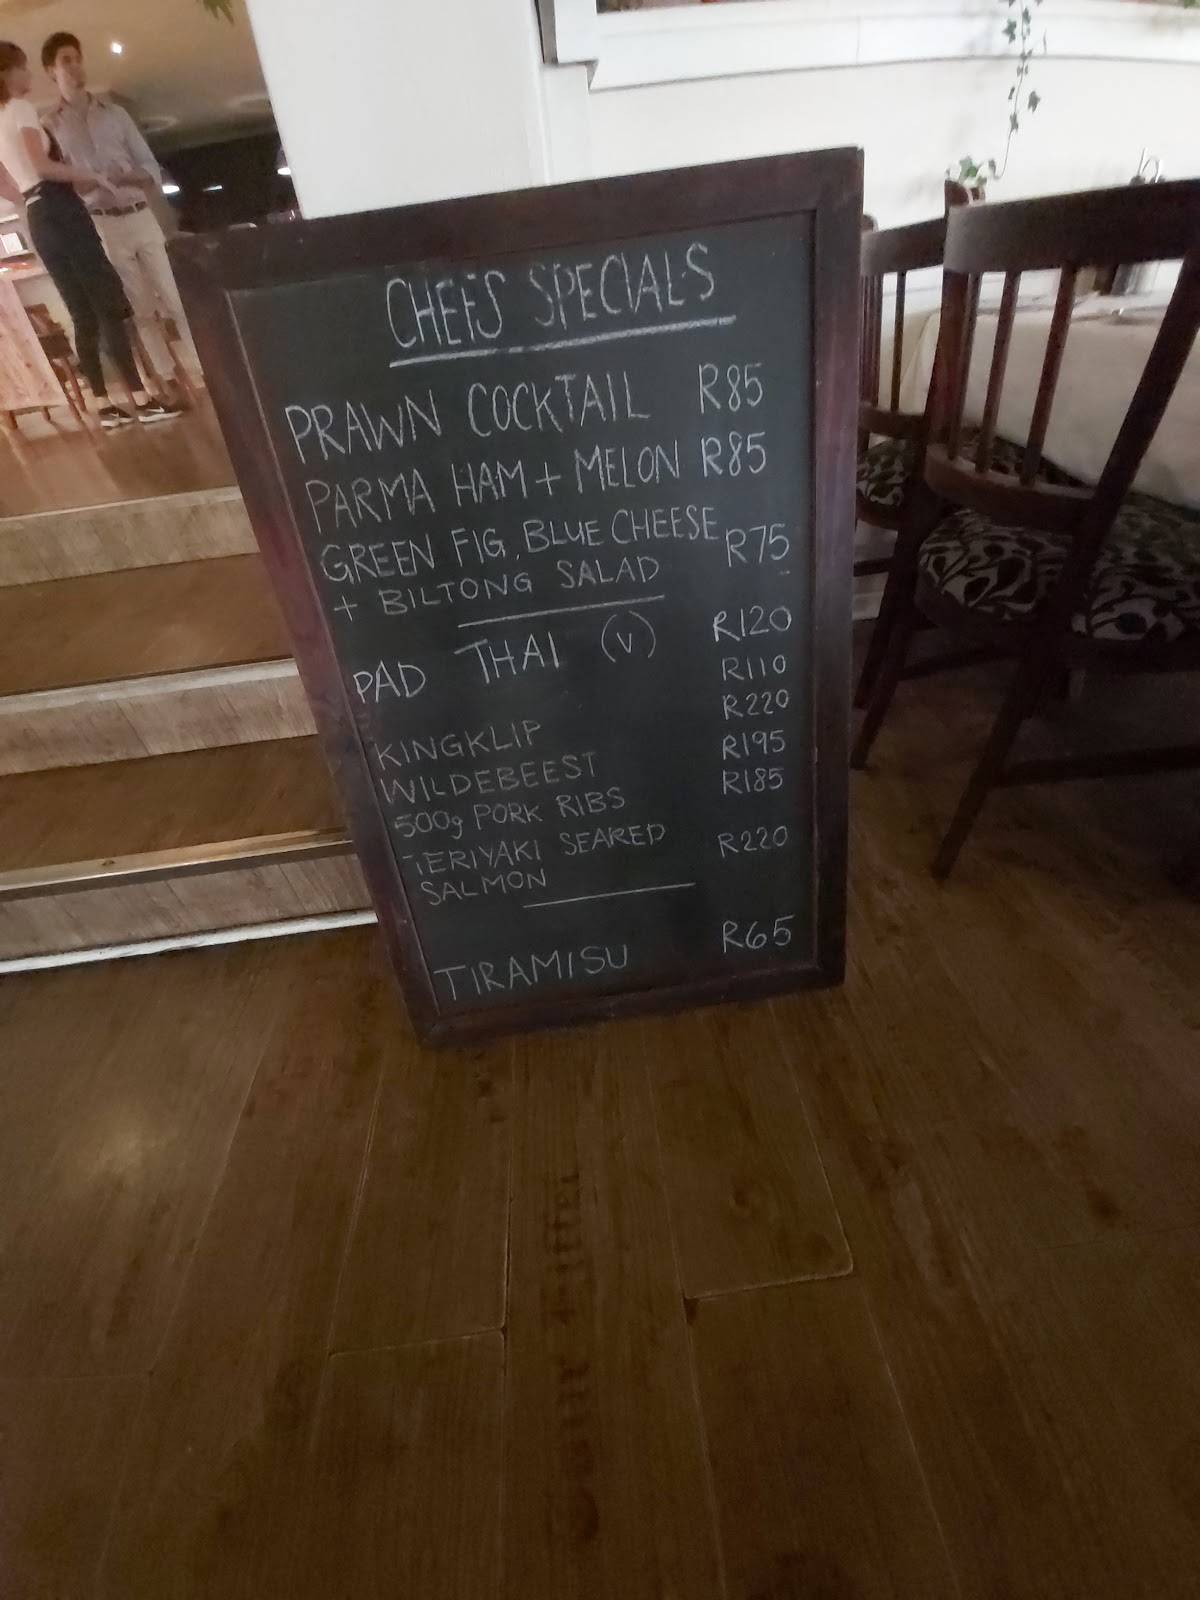 CHEFS SPECIALS
PRAWN COCKTAIL R85
PARMA HAM + MELON R85
GREEN FIG, BLUE CHEESE R75
+ BILTONG SALAD
PAD THAI (V) R120
R110
KINGKLIP R220
WILDEBEEST R195
500g PORK RIBS R185
TERIYAKI SEARED
SALMON R220
TIRAMISU R65